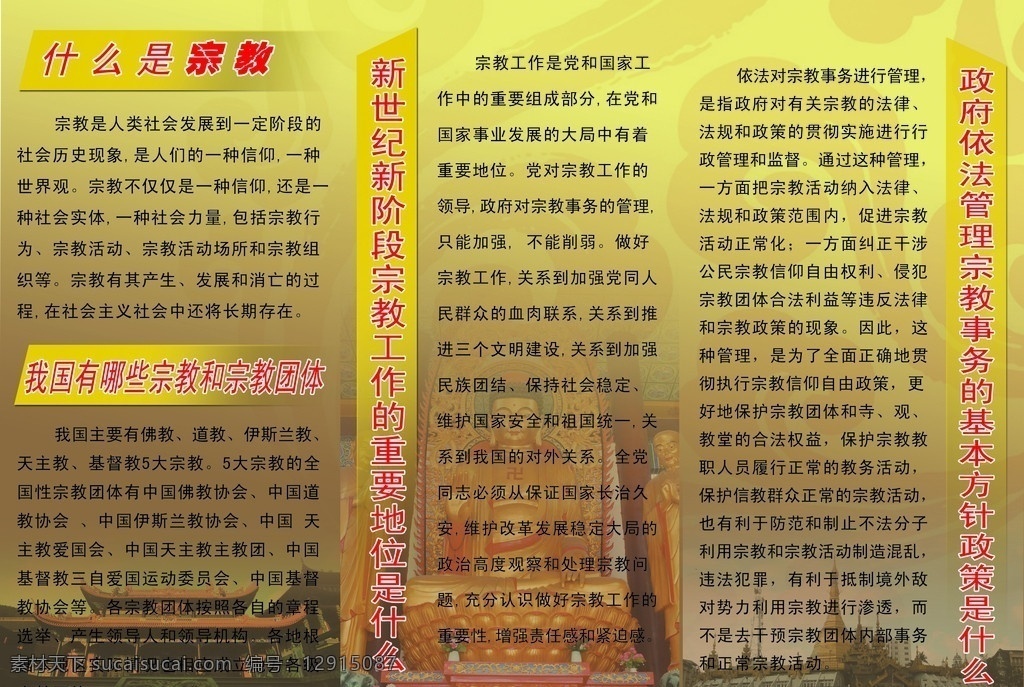 什么是宗教
宗教是人类社会发展到一定阶段的
社会历史现象,是人们的一种信仰,一种
世界观。宗教不仅仅是一种信仰,还是一
种社会实体,一种社会力量,包括宗教行
为、宗教活动、宗教活动场所和宗教组
织等。宗教有其产生、发展和消亡的过
程,在社会主义社会中还将长期存在。
我国有哪些宗教和宗教团体
我国主要有佛教、道教、伊斯兰教、
天主教、基督教5大宗教。5大宗教的全
国性宗教团体有中国佛教协会、中国道
教协会 、中国伊斯兰教协会、中国 天
主教爱国会、中国天主教主教团、中国
基督教三自爱国运动委员会、中国基督
教协会等。各宗教团体按照各自的章程
选举、产生领导人和领导机构。各地根
新世纪新阶段宗教工作的重要地位是什么
宗教工作是党和国家工
作中的重要组成部分,在党和
国家事业发展的大局中有着
重要地位。党对宗教工作的
领导,政府对宗教事务的管理,
只能加强, 不能削弱。做好
宗教工作,关系到加强党同人
民群众的血肉联系,关系到推
进三个文明建设,关系到加强
民族团结、保持社会稳定、
维护国家安全和祖国统一,关
系到我国的对外关系。全党
同志必须从保证国家长治久
安,维护改革发展稳定大局的
政治高度观察和处理宗教问
题,充分认识做好宗教工作的
重要性,增强责任感和紧迫感。
依法对宗教事务进行管理,
是指政府对有关宗教的法律、
法规和政策的贯彻实施进行行
政管理和监督。通过这种管理,
一方面把宗教活动纳入法律、
法规和政策范围内，促进宗教
活动正常化；一方面纠正干涉
公民宗教信仰自由权利、侵犯
宗教团体合法利益等违反法律
和宗教政策的现象。因此，这
种管理，是为了全面正确地贯
彻执行宗教信仰自由政策，更
好地保护宗教团体和寺、观、
教堂的合法权益，保护宗教教
职人员履行正常的教务活动,
保护信教群众正常的宗教活动,
也有利于防范和制止不法分子
利用宗教和宗教活动制造混乱,
违法犯罪，有利于抵制境外敌
对势力利用宗教进行渗透，而
不是去干预宗教团体内部事务
和正常宗教活动。
政府依法管理宗教事务的基本方针政策是什么
素材天下 sucaisucai.com 编号: